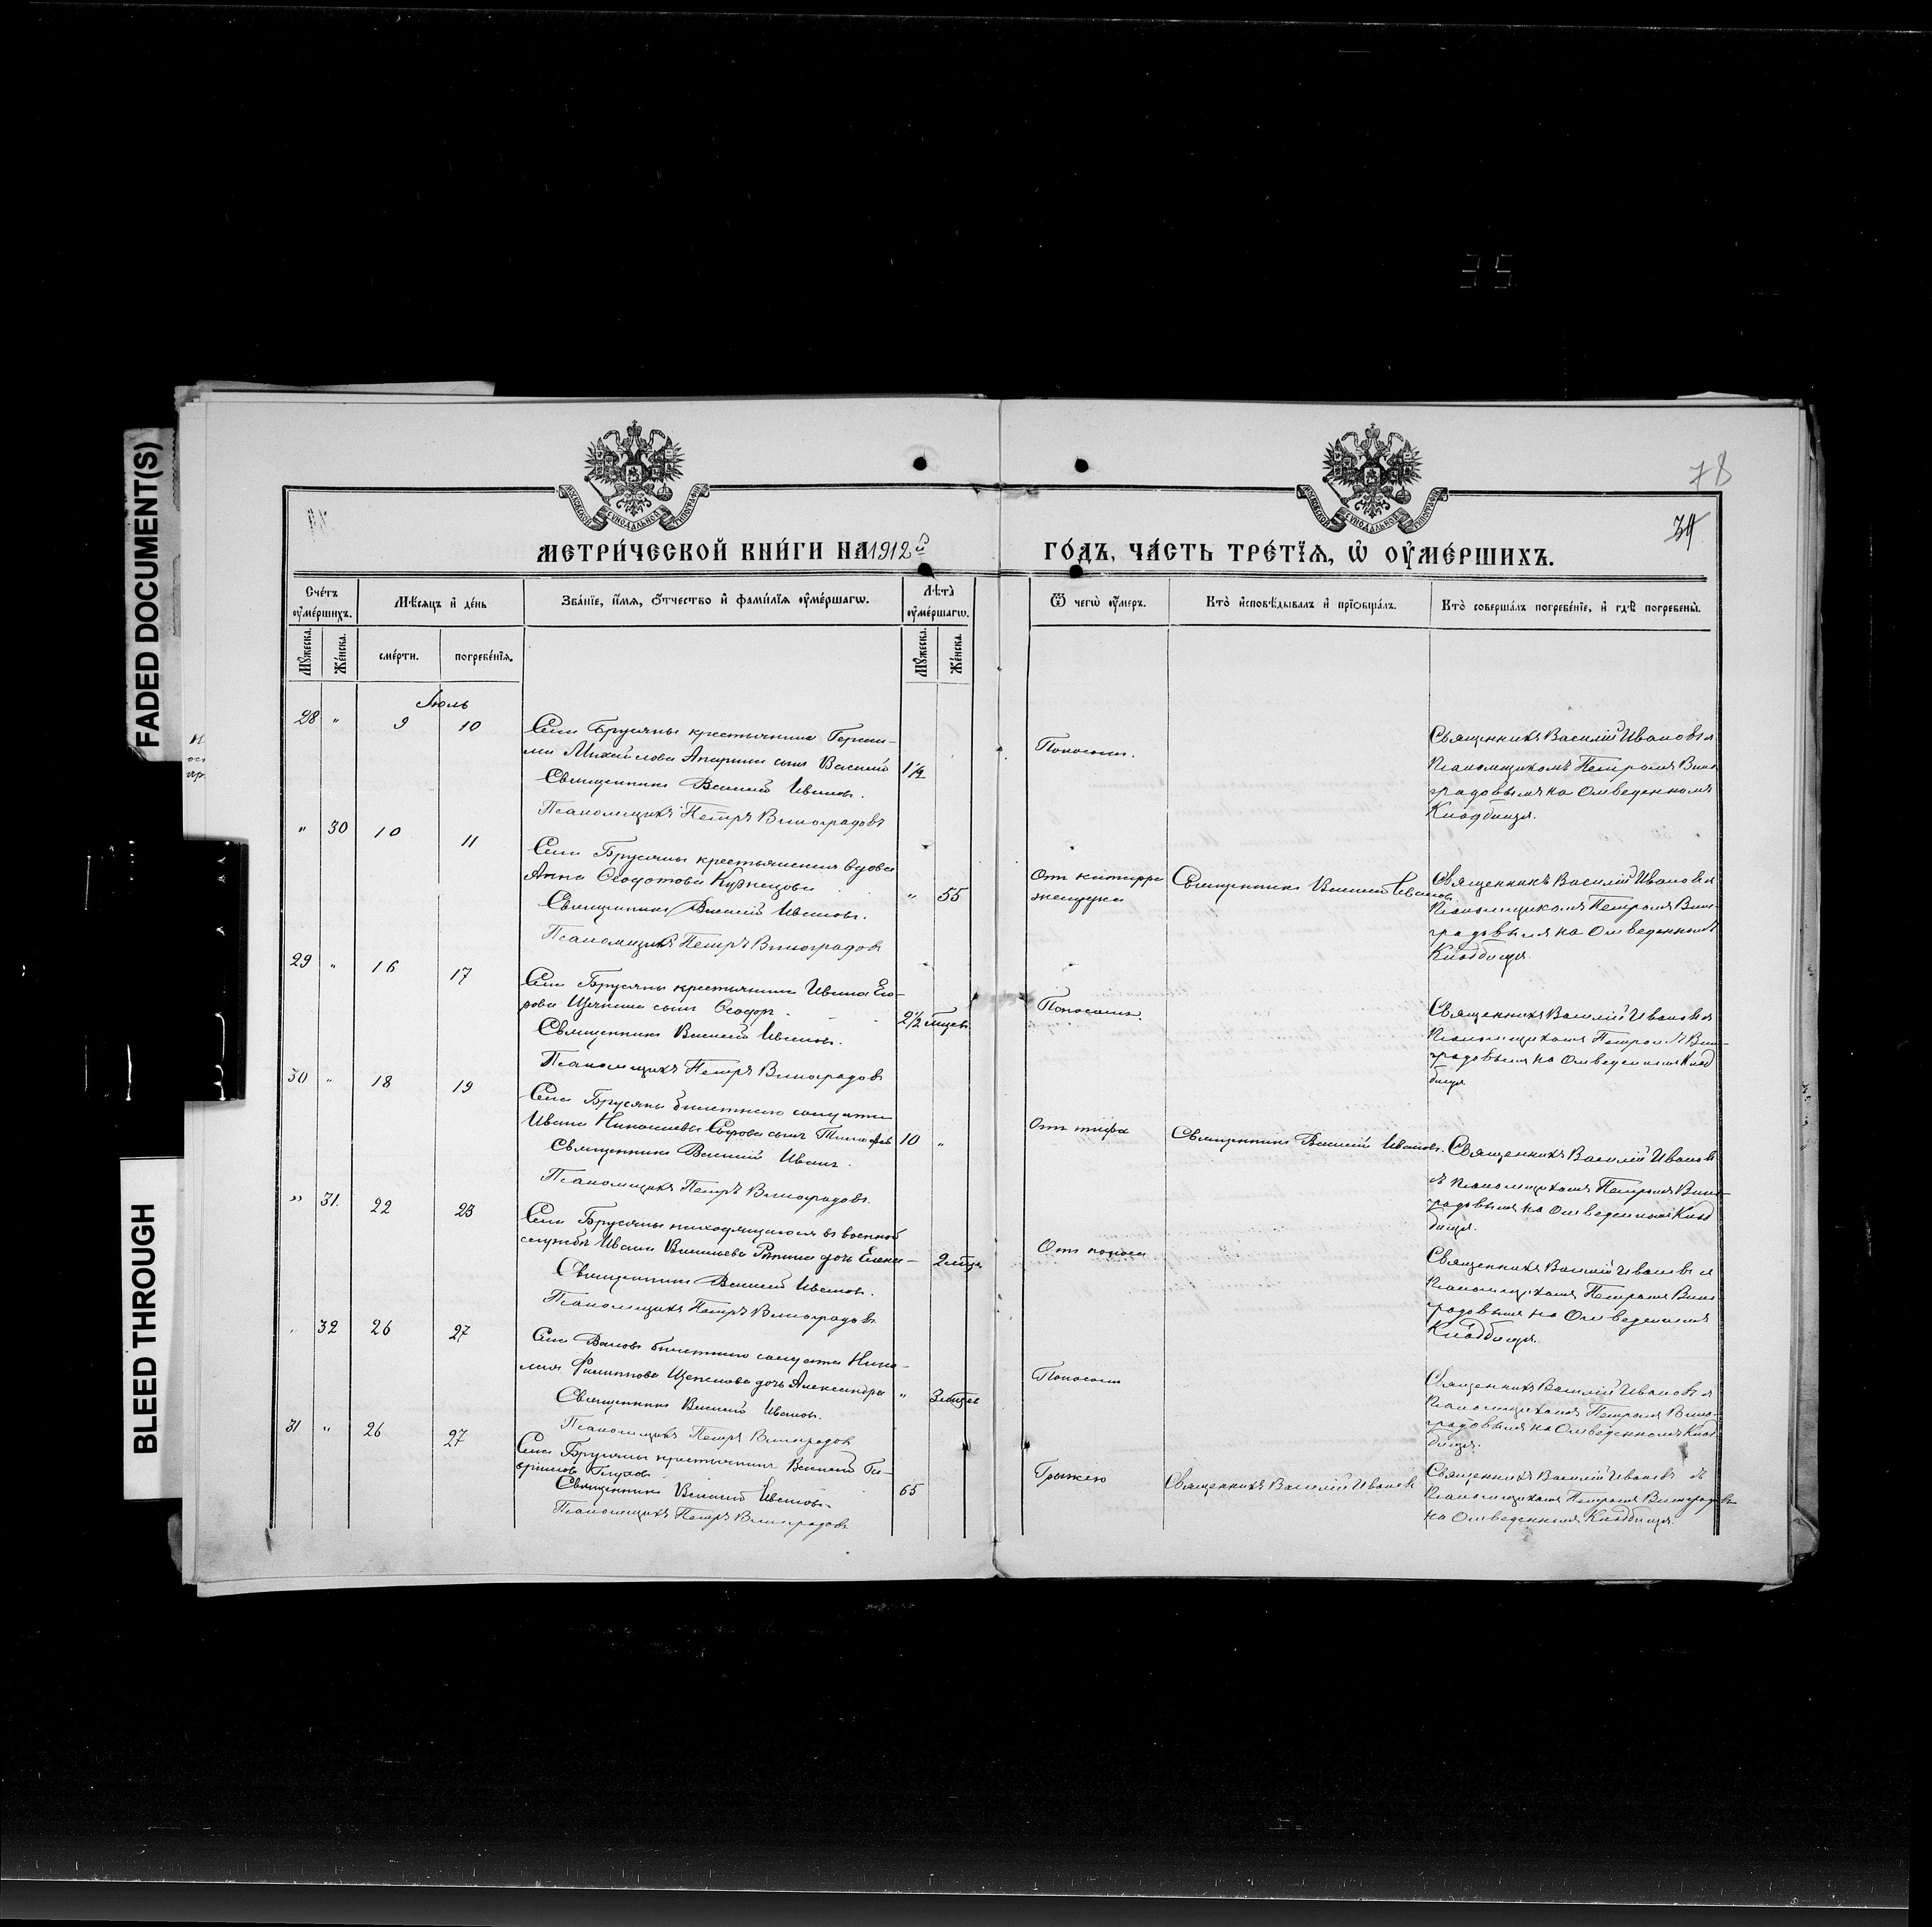 FADED DOCUMENT(S)
BLEED THROUGH
35
78
34
МОСКОВСКОЙ СѴНОДАЛЬНОЙ ТИПОГРАФІИ
МОСКОВСКОЙ СѴНОДАЛЬНОЙ ТИПОГРАФІИ
МЕТРИ́ЧЕСКОЙ КНИ́ГИ НА 1912й ГО́ДЪ, ЧА́СТЬ ТРЕ́ТЇѦ, Ѡ҆ ОУ҆МЕ́РШИХЪ.
Сче́тъ оу҆ме́ршихъ.
Мѣ́сяцъ и҆ де́нь
Зва́нїе, и҆́мя, ѻ҆́тчество и҆ фами́лїя оу҆ме́ршагѡ.
Лѣ́та̀ оу҆ме́ршагѡ.
Ѿ чегѡ̀ оу҆́меръ.
Кто̀ и҆сповѣ́дывалъ и҆ прїѡбща́лъ.
Кто̀ соверша́лъ погребе́нїе, и҆ гдѣ̀ погребены̀.
Мꙋ́жеска.
Же́нска.
сме́рти.
погребе́нїя.
Мꙋ́жеска.
Же́нска.
Іюль
28 " 9 10
Села Брусяны крестьянина Гераси-
ма Михайлова Апарина сынъ Василій 1½
Священникъ Василій Ивановъ.
Псаломщикъ Петръ Виноградовъ
Поносомъ.
Священникъ Василій Ивановъ и
Псаломщикомъ Петромъ Вино
градовымъ на Отведенномъ
Кладбищѣ.
" 30 10 11
Села Брусяны крестьянская вдова
Анна Ѳедотова Кузнецова " 55
Священникъ Василій Ивановъ.
Псаломщикъ Петръ Виноградовъ
Отъ катарра
желудка
Священникъ Василій Ивановъ
Священникъ Василій Ивановъ и
Псаломщикомъ Петромъ Вино-
градовымъ на Отведенномъ
Кладбищѣ.
29 " 16 17
Села Брусяны крестьянина Ивана Его-
рова сынъ Ѳеодоръ 2½ мѣсяц.
Священникъ Василій Ивановъ.
Псаломщикъ Петръ Виноградовъ
Поносомъ.
Священникъ Василій Ивановъ и
Псаломщикомъ Петромъ Вино-
градовымъ на Отведенномъ Клад
бищѣ
30 " 18 19
Села Брусяны билетнаго солдата
Ивана Николаева сынъ Тимофей 10 "
Священникъ Василій Ивановъ.
Псаломщикъ Петръ Виноградовъ.
Отъ тифа
Священникъ Василій Ивановъ.
Священникъ Василій Ивановъ
и Псаломщикомъ Петромъ Вино-
градовымъ на Отведенномъ Клад
бищѣ.
" 31. 22 23
Села Брусяны находящагося въ военной
службѣ Ивана Васильева Рѣпина дочь Елена 2 мѣсяца
Священникъ Василій Ивановъ.
Псаломщикъ Петръ Виноградовъ
Отъ поноса
Священникъ Василій Ивановъ и
Псаломщикомъ Петромъ Вино
градовымъ на Отведенномъ
Кладбищѣ.
" 32 26 27
Села билетнаго солдата Нико-
лая Филиппова дочь Александра " 3 мѣсяц.
Священникъ Василій Ивановъ.
Псаломщикъ Петръ Виноградовъ
Поносомъ
Священникъ Василій Ивановъ и
Псаломщикомъ Петромъ Вино
градовымъ на Отведенномъ Клад
бищѣ.
31 " 26 27
Села Брусяны крестьянинъ Василій Га-
вриловъ Глуховъ 65
Священникъ Василій Ивановъ.
Псаломщикъ Петръ Виноградовъ.
Грыжею
Священникъ Василій Ивановъ
Священникъ Василій Ивановъ и
Псаломщикомъ Петромъ Виноградовымъ
на Отведенномъ Кладбищѣ.